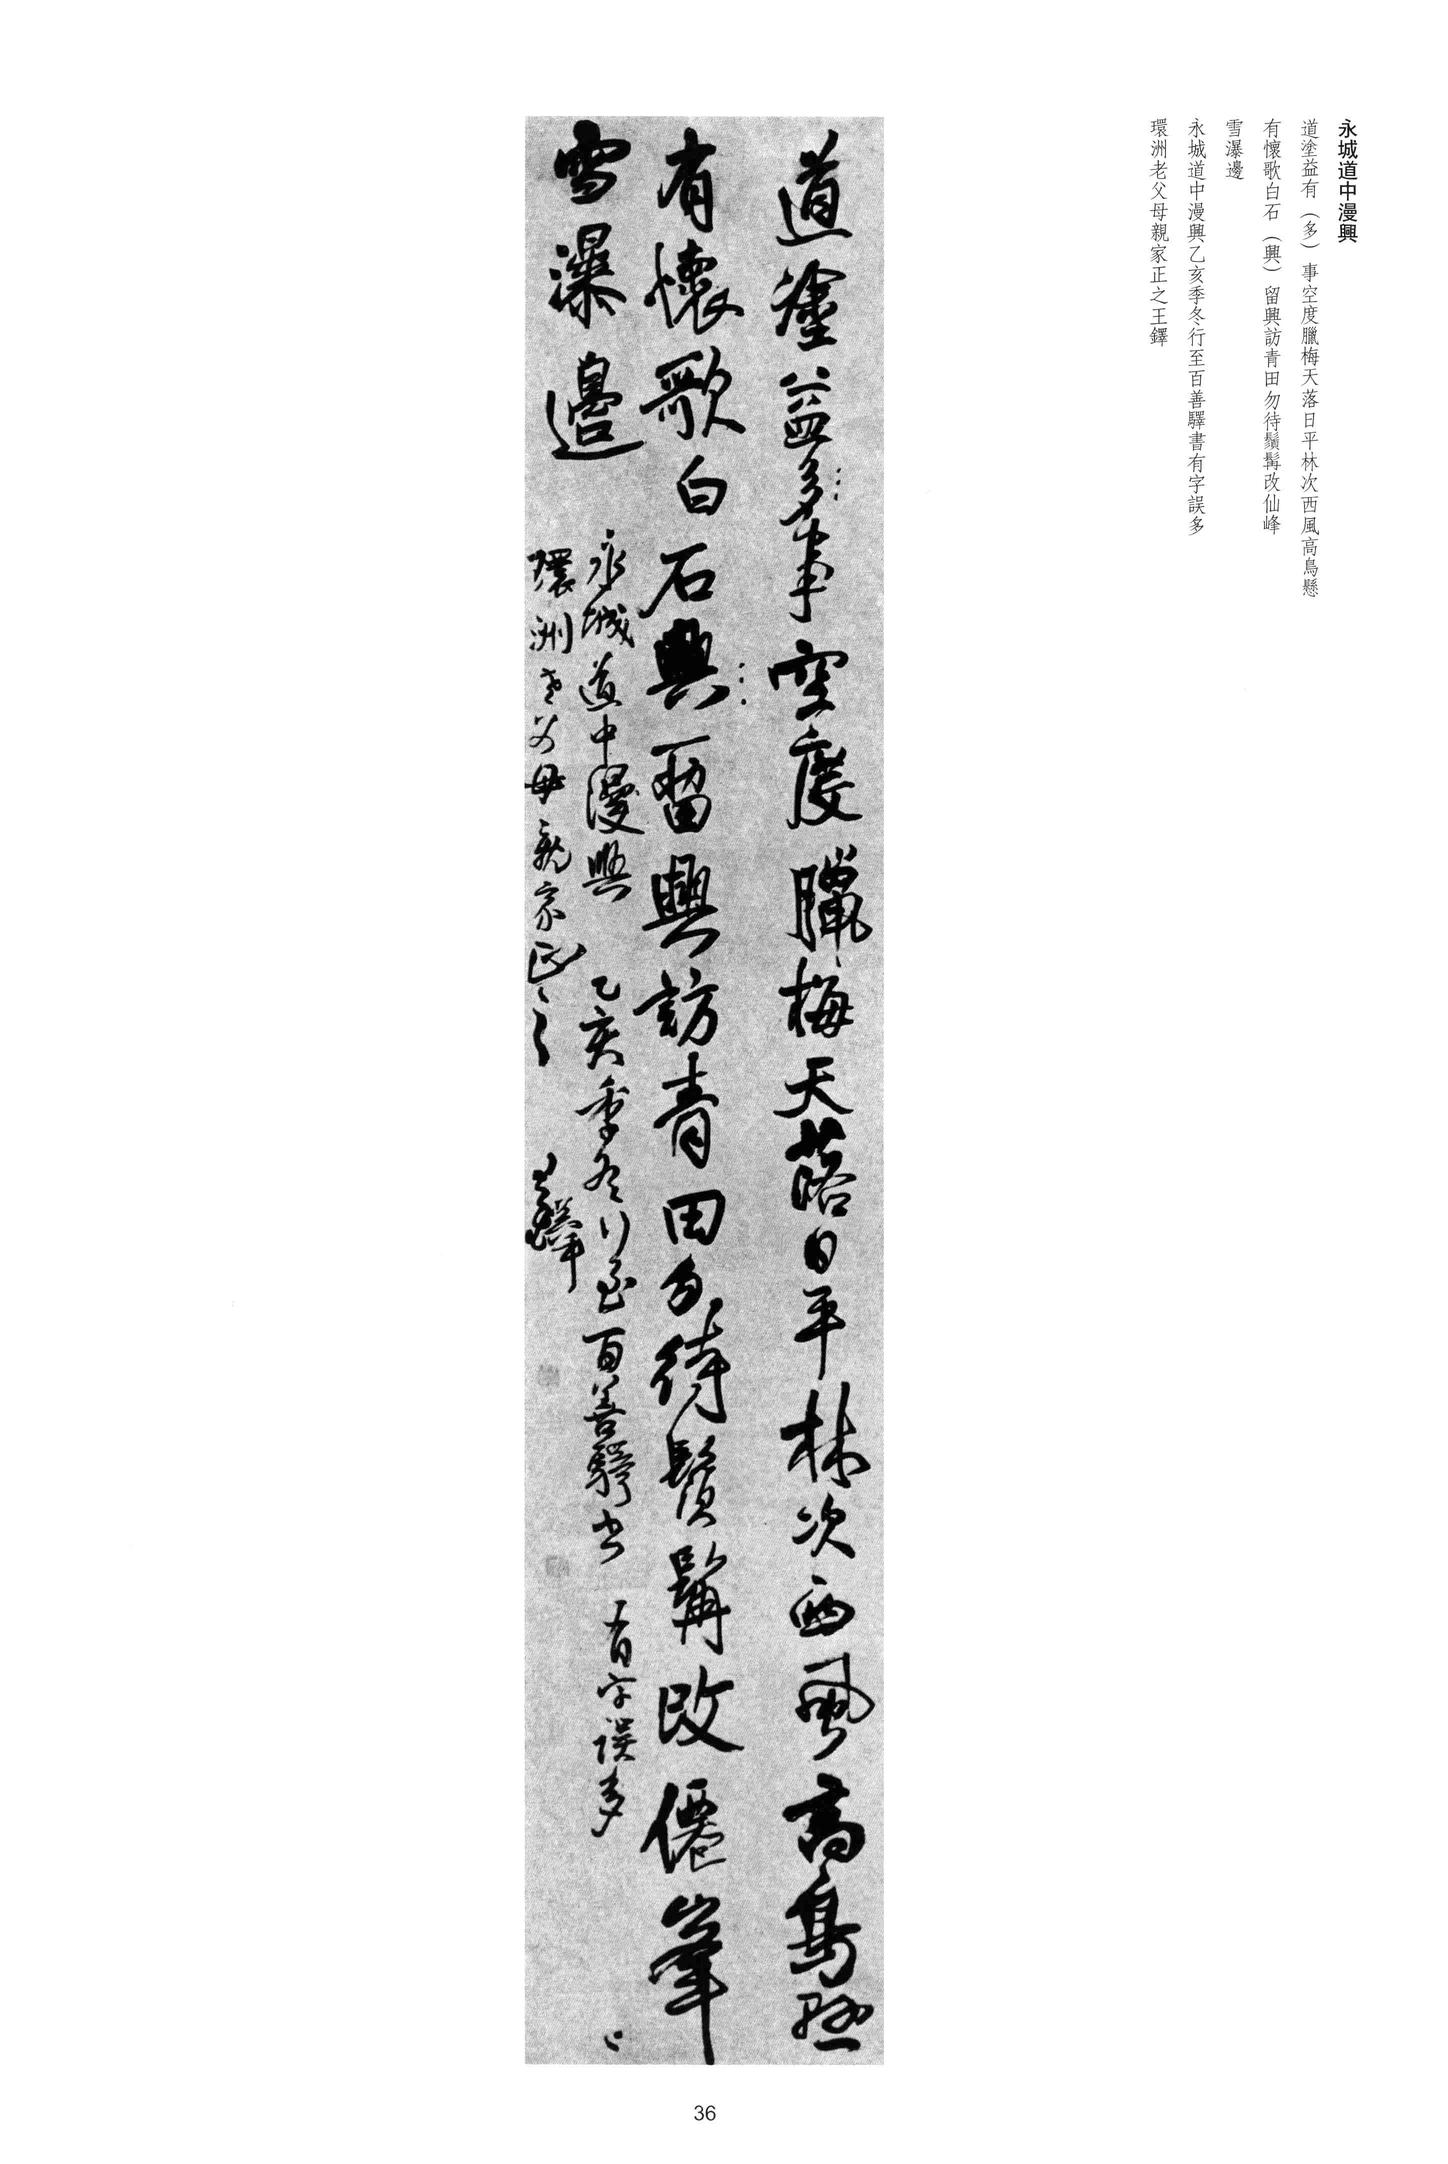 永城道中漫興
道塗益有（多）事空度臘梅天落日平林次西風高鳥懸
有懷歌白石（興）留興訪青田勿待鬚髯改仙峰
雪瀑邊
永城道中漫興乙亥季冬行至百善驛書有字誤多
環洲老父母親家正之王鐸
道塗益多事空度臘梅天落日平林次西風高鳥懸
有懷歌白石興留興訪青田勿待鬚髯改僊峯
雪瀑邊
永城道中漫興 乙亥季冬行至百善驛書 有字誤多
環洲老父母親家正之 王鐸
36